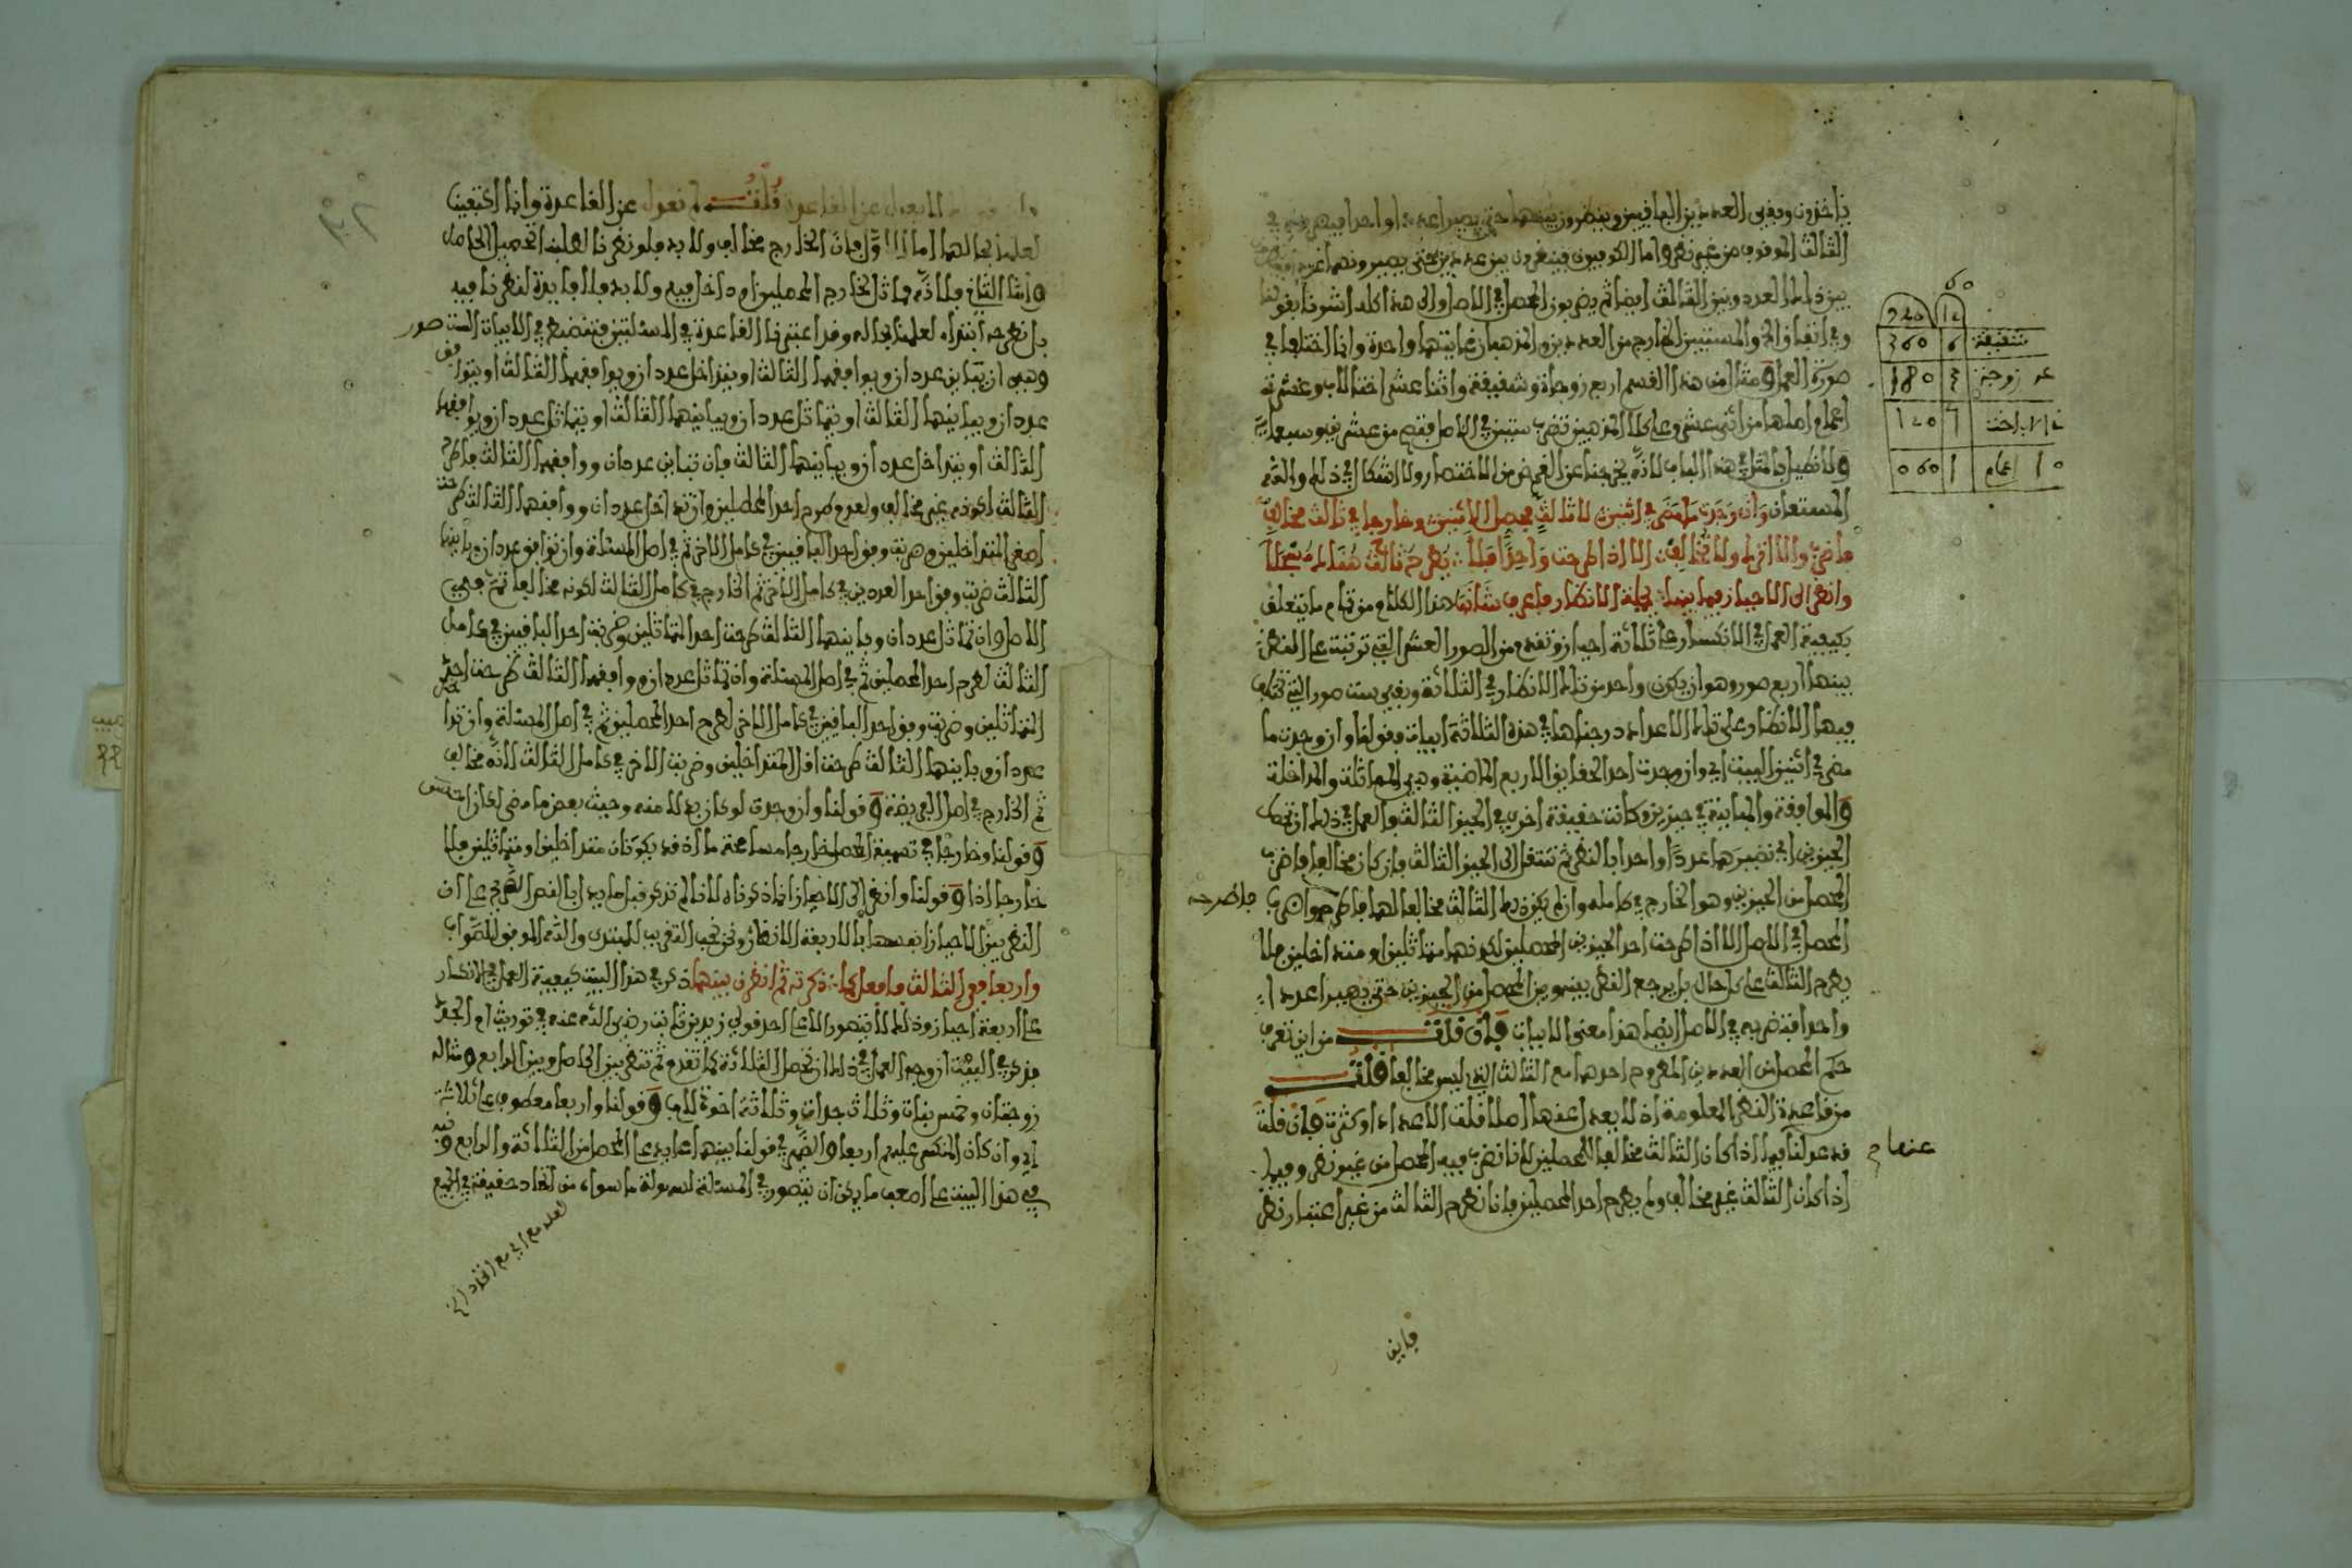 ياخذون وفق العددين الباقيين وينظرون بينهما حتى يصير عددا واحدا
الثالث الموقوف من غير نظر واما الكوفيون فينظرون بين عددين حتى يصيرونهما
بين ذلك العدد وبين الثالث ايضا ثم يضربون المحصل في الاصل والى هذا كله اشرنا بقولنا
صورة العمل ومثال من هذا القسم اربع زوجات وشقيقة واثنا عشر اختا لاب وعشرة
اعمام اصلها من اثنى عشر وعلى كلا المذهبين تضرب ستين في الاصل فتصح من عشرين وسبعمائة
ولا نطيل بالمثل في هذا الباب لانه يخرجنا عن الغرض من الاختصار ولا اشكال في ذلك والله
المستعان وان وجدت ما مضى في اثنين لا ثالث محصل الاثنين وخارجا في ثالث مخالف
فاضرب والا اترك ولا تخالف الا اذا طرحت واحدا فلا يطرح ثالث
وانظر الى الاحياز فيما بينها بجملة الانظار فاعرف شانها هذا الكلام من تمام ما يتعلق
بكيفية العمل في الانكسار على ثلاثة احياز وتقدم من الصور العشر التي ترتبت على النظر
بينها اربع صور وهو ان يكون واحد من تلك الانظار في الثلاثة وبقي ست صور التي تختلف
فيها الانظار على تلك الاعداد درجناها في هذه الثلاثة ابيات وقولنا وان وجدت ما
مضى في اثنين البيت اي وان وجدت احد الحقايق الاربع الماضية وهي المماثلة والمداخلة
والموافقة والمباينة في حيزين وكانت حقيقة اخرى في الحيز الثالث فالعمل في ذلك ان تحصل
الحيزين اي تصيرهما عددا واحدا بالنظر ثم تنتقل الى الحيز الثالث فان كان مخالفا فاضرب
المحصل من الحيزين وهو الخارج في كامله وان لم يكن ذلك الثالث مخالفا لهما فاطرحه واضرب
فاطرحه
المحصل في الاصل الا اذا طرحت احد الحيزين المحصلين لكونهما متماثلين او متداخلين فلا
يطرح الثالث على كل حال بل يرجع النظر بينه وبين المحصل من الحيزين حتى يصيرا عددا
واحدا فتضربه في الاصل ايضا هذا معنى الابيات فان قلت من اين تعرف
حكم المحصل من العددين المطروح احدهما مع الثالث الذي ليس مخالفا قلت
من قاعدة النظر المعلومة اذ لا يعدل عنها اصلا قلت الاعداد او كثرت فان قلت
قد عدلنا فيما اذا كان الثالث مخالفا للمحصلين لانا نضرب فيه المحصل من غير نظر وفيما
عنها
اذا كان الثالث غير مخالف ولم يطرح احد المحصلين فانا نطرح الثالث من غير اعتبار نظر
فايق
60
12 720
شقيقة 6 360
عد زوجة 3 180
اخت 2 120
10 اعمام 1 060
لا نعدل عن القاعدة قلت لم نعدل عن القاعدة وانما اكتفينا
لعلمنا بحالهما اما الاول فان الخارج مخالف ولا بد فلو نظرنا لطلبنا تحصيل الحاصل
واما الثاني فلانه مماثل للخارج المحصلين او داخل فيه ولا بد فلا فايدة لنظرنا فيه
بل نطرحه ابتداء لعلمنا بحاله وقد اعتبرنا القاعدة في المسئلتين فتضمنت الابيات الست صور
وهي ان يتباين عددان ويوافقهما الثالث او يتداخل عددان ويوافقهما الثالث او يتوافق
عددان ويباينهما الثالث او يتماثل عددان ويباينهما الثالث او يتماثل عددان ويوافقهما
الثالث او يتداخل عددان ويباينهما الثالث فان تباين عددان ووافقهما الثالث فاطرح
الثالث لكونه غير مخالف ولعدم طرح احد المحصلين وان تداخل عددان ووافقهما الثالث طرحت
اصغر المتداخلين وضربت وفق احد الباقيين في كامل الاخر ثم في اصل المسئلة وان توافق عددان وباينهما
الثالث ضربت وفق احد العددين في كامل الاخر ثم الخارج في كامل الثالث لكونه مخالفا ثم في
الاصل وان تماثل عددان وباينهما الثالث طرحت احد المتماثلين وضربت احد الباقيين في كامل
الثالث لطرح احد المحصلين ثم في اصل المسئلة وان تماثل عددان ووافقهما الثالث طرحت احد
المتماثلين وضربت وفق احد الباقيين في كامل الاخر لطرح احد المحصلين ثم في اصل المسئلة وان تداخل
عددان وباينهما الثالث طرحت اقل المتداخلين وضربت الاخر في كامل الثالث لانه مخالف
ثم الخارج في اصل الفريضة وقولنا وان وجدت
وقولنا وخارجا في تسمية المحصل خارجا مسامحة ما اذ قد يكونان متداخلين او متماثلين فلا
خارجا اذا وقولنا وانظر الى الاحياز انما ذكرناه لانا لم نذكر قبل ما يدل بالنص الصريح على ان
النظر بين الاحياز انفسها بالاربعة الانظار ونحن نحب التقريب للمبتدي والله الموفق للصواب
واربعا وفي الثالث فافعل كما ذكرته ثم انظرن بينهما ذكر في هذا البيت كيفية العمل في الانكسار
على اربعة احياز وذلك لا يتصور الا على احد قولي زيد بن ثابت رضى الله عنه في توريث ام الجد
فذكر في البيت ان وجه العمل في ذلك ان تحصل الثلاثة كما تقدم ثم تنظر بين الحاصل وبين الرابع ومثاله
زوجتان وخمس بنات وثلاث جدات وثلاثة اخوة للاب وقولنا واربعا معطوف على ثلاثة
اي وان كان المنكسر عليهم اربعا والضمير في قولنا بينهما عايد على المحصل من الثلاثة والرابع ونبه
في هذا البيت على اصعب ما يمكن ان يتصور في المسئلة لسهولة ما سواه من اتحاد حقيقة في الجميع